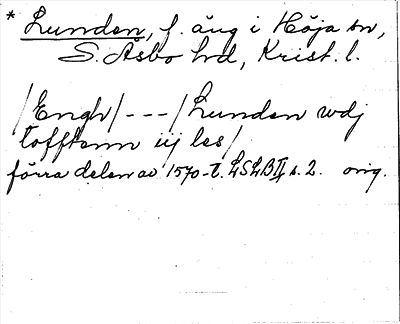 * Lunden, f. äng i Höja sn,
S. Åsbo hd, Krist. l.
/Engh/---/Lunden wdj
tofftenn iij les/
förra delen av 1570-t. LSLB II s. 2. orig.